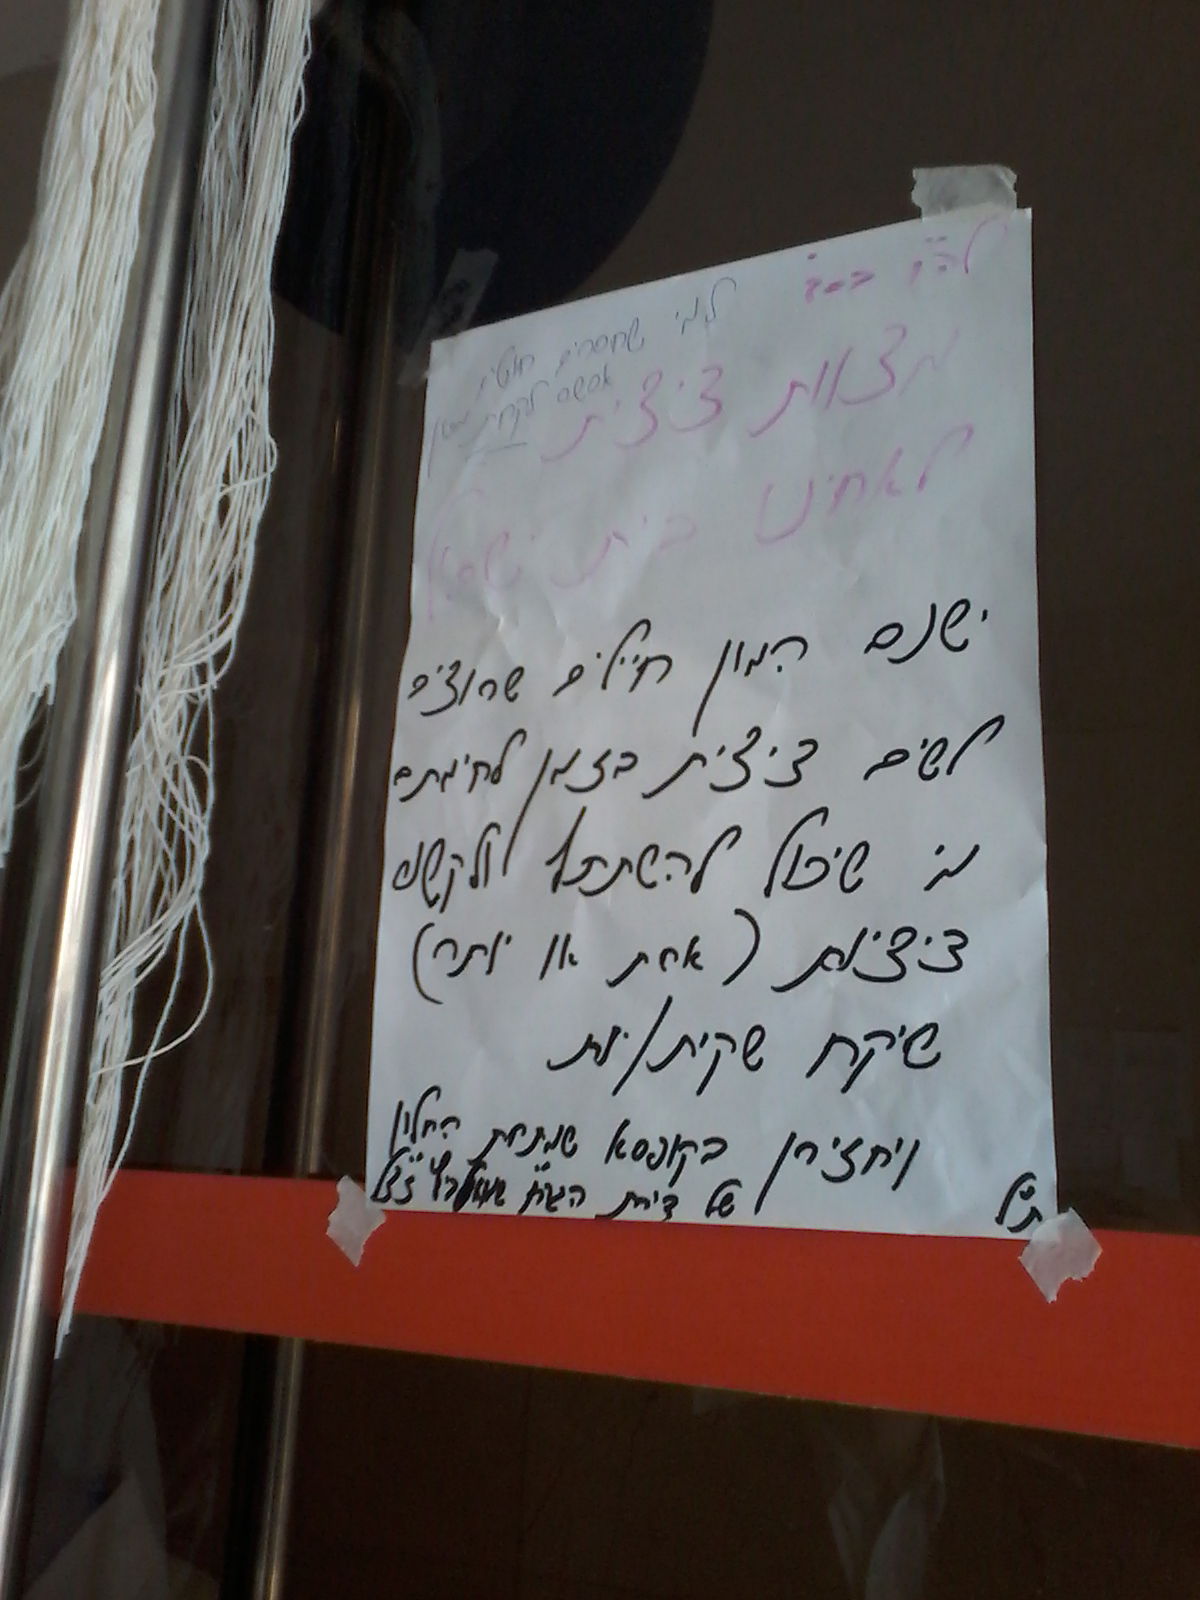 בס"ד
למי שחסרים חוטים
אפשר לקחת מכאן
מצוות ציצית
לאחינו בית ישראל
ישנם המון חיילים שרוצים
לשים ציצית בזמן לחימתם
מי שיכול להשתתף ולקשור
ציצית (אחת או יותר)
שיקח שקית/יות
ויחזירן בקופסא שמתחת החלון
של דירת זצ"ל